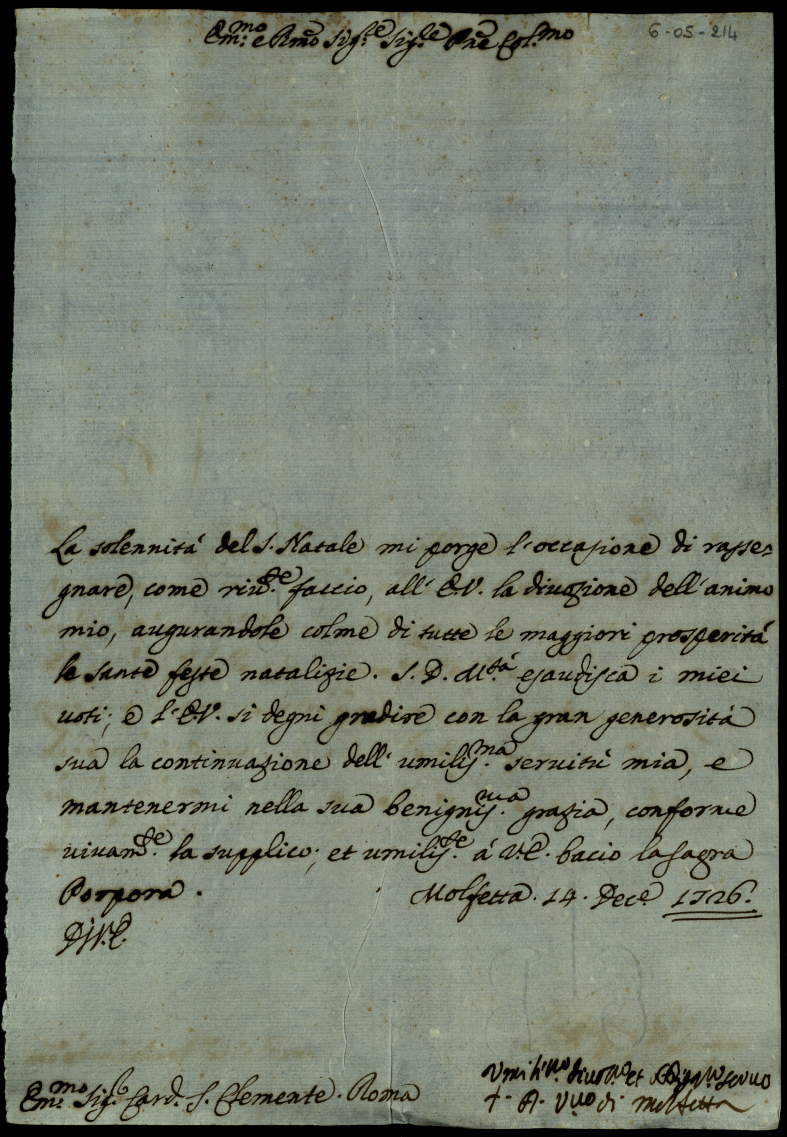 Em.mo e Rmo Sig.re Sig.re Pne Col.mo
6-05-214
La solennità del S. Natale mi porge l'occasione di rasse=
gnare, come riv.te faccio, all'E.V. la divozione dell'animo
mio, augurandole colme di tutte le maggiori prosperità
le sante feste natalizie. S. D. M.tà esaudisca i miei
voti; e l'E.V. si degni gradire con la gran generosità
sua la continuazione dell'umiliss.ma servitù mia, e
mantenermi nella sua benigniss.ma grazia, conforme
vivam.te la supplico; et umiliss.te à V.E. bacio la sagra
Porpora.
Molfetta. 14. Dec.e 1726.
Di V.E.
Em.mo Sig.r Card. S. Clemente. Roma
Umiliss.mo Divot.mo et Obblig.mo Servo
+ A. V.vo di Molfetta